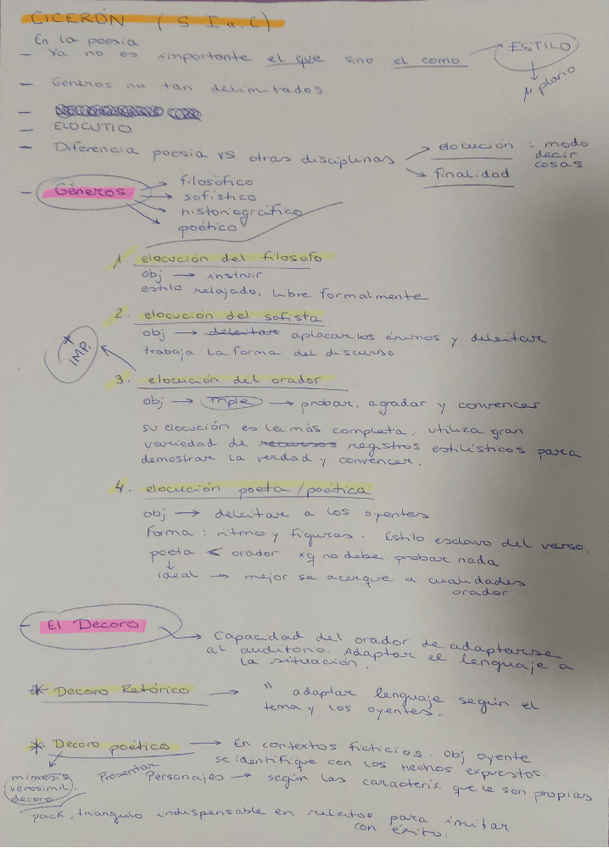 CICERÓN ( S I a.C )
En la poesía
- Ya no es importante el que sino el como → ESTILO
↓
1r plano
- Géneros no tan delimitados
- ELOCUTIO
- Diferencia poesía vs otras disciplinas → elocución : modo decir cosas
→ finalidad
- Géneros → filosófico
→ sofístico
→ historiográfico
→ poético
1. elocución del filósofo
obj → instruir
estilo relajado, libre formalmente
2. elocución del sofista
obj → deleitar aplacar los ánimos y deleitar
trabaja la forma del discurso
+ IMP.
3. elocución del orador
obj → Triple → probar, agradar y convencer
su elocución es la más completa, utiliza gran
variedad de recursos registros estilísticos para
demostrar la verdad y convencer.
4. elocución poeta / poética
obj → deleitar a los oyentes
forma : ritmo y figuras. Estilo esclavo del verso.
poeta < orador xq no debe probar nada
↓
ideal → mejor se acerque a cualidades
orador
- El Decoro
→ Capacidad del orador de adaptarse
al auditorio. Adaptar el lenguaje a
la situación.
* Decoro Retórico → " adaptar lenguaje según el
tema y los oyentes.
* Decoro poético → En contextos ficticios. obj oyente
se identifique con los hechos expuestos.
mimesis
verosimil.
decoro
Presentar Personajes → según las caracterís. que le son propias
pack, triangulo indispensable en relatos para imitar
con éxito.